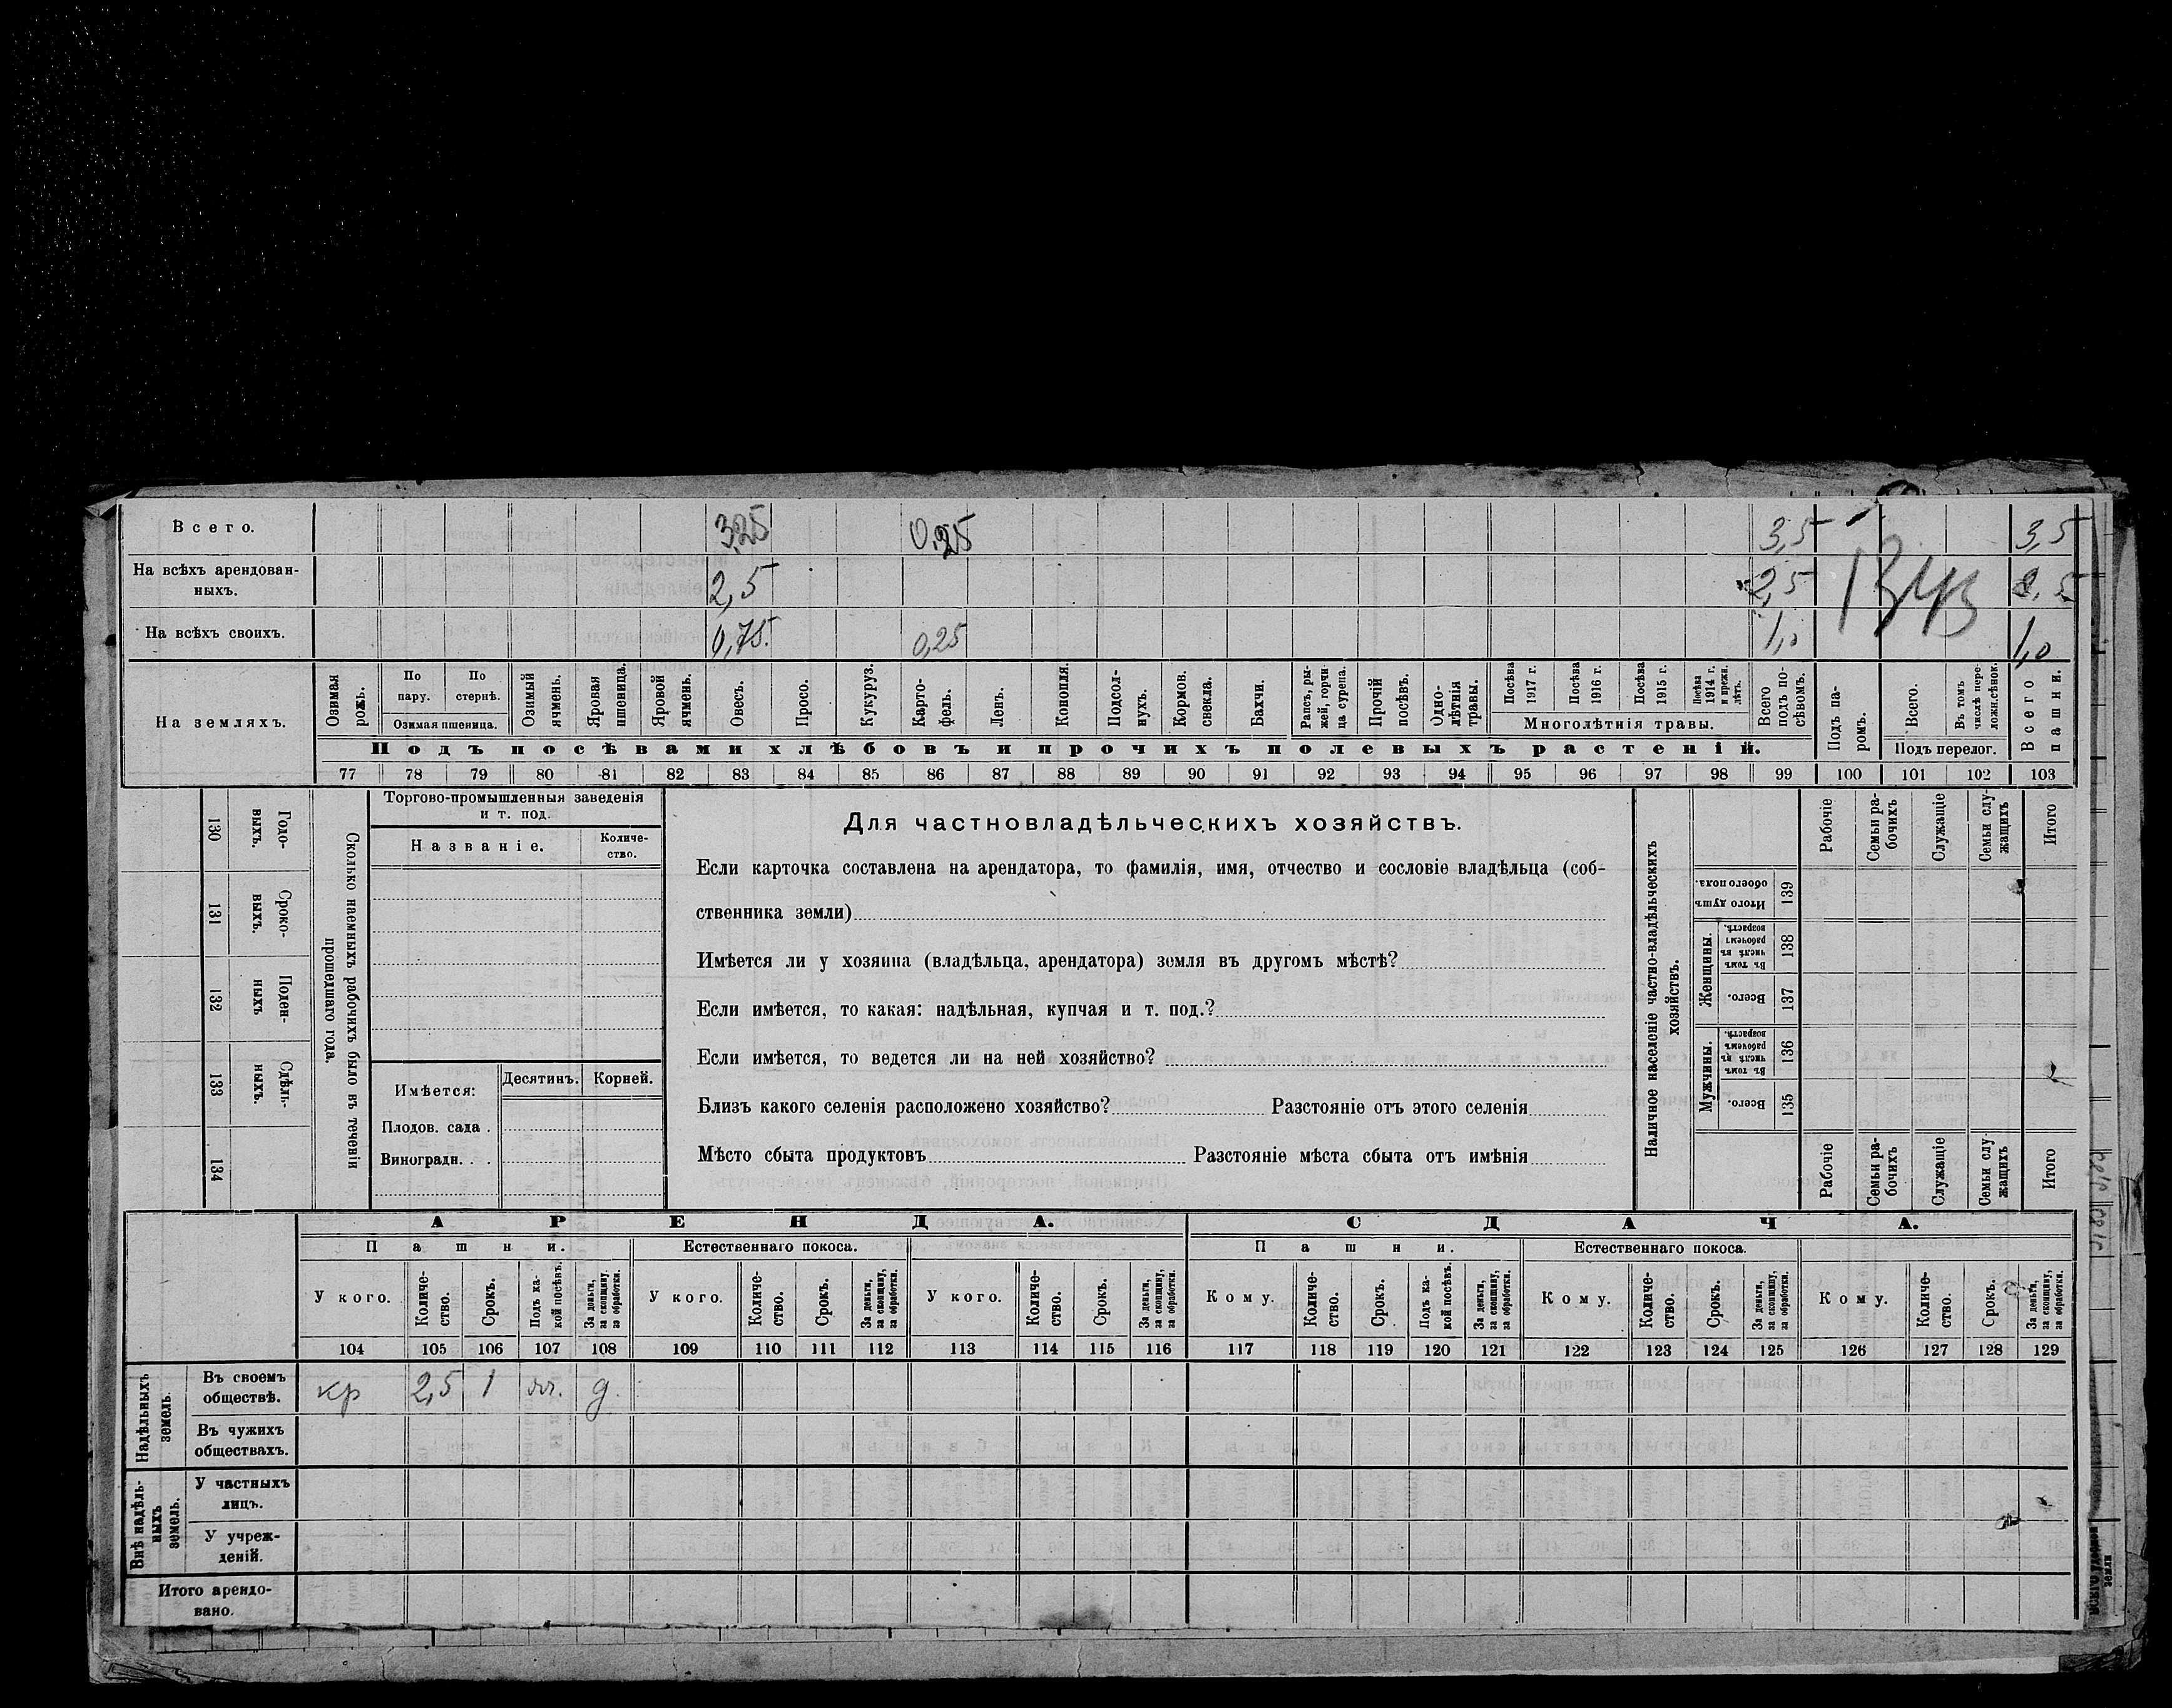 Всего. 3,25 0,25 3,5 3,5
На всѣхъ арендован-
ныхъ. 2,5 2,5 2,5
На всѣхъ своихъ. 0,75. 0,25 1,0 1,0
1343
На земляхъ.
Озимая рожь.
По пару.
По стернѣ.
Озимая пшеница.
Озимый ячмень.
Яровая пшеница.
Яровой ячмень.
Овесъ.
Просо.
Кукуруз.
Карто-
фель.
Ленъ.
Конопля.
Подсол-
нухъ.
Кормов.
свекла.
Бахчи.
Рапсъ, ры-
жей, горчи
ца сурепа.
Прочій
посѣвъ.
Одно-
лѣтнія
травы.
Посѣва
1917 г.
Посѣва
1916 г.
Посѣва
1915 г.
Посѣва
1914 г.
и прежн.
лѣтъ.
Многолѣтнія травы.
Всего
подъ по-
сѣвомъ.
Подъ па-
ромъ.
Всего.
Въ томъ
числѣ пере-
ложн.сѣнок.
Подъ перелог.
Всего
пашни.
Подъ посѣвами хлѣбовъ и прочихъ полевыхъ растеній.
77 78 79 80 81 82 83 84 85 86 87 88 89 90 91 92 93 94 95 96 97 98 99 100 101 102 103
130 Годо-
выхъ.
131 Сроко-
выхъ.
132 Поден-
ныхъ
133 Сдѣль-
ныхъ.
134
Сколько наемныхъ рабочихъ было въ теченіи
прошедшаго года.
Торгово-промышленныя заведенія
и т. под.
Названіе.
Количе-
ство.
Имѣется: Десятинъ. Корней.
Плодов. сада .
Виноградн. . .
Для частновладѣльческихъ хозяйствъ.
Если карточка составлена на арендатора, то фамилія, имя, отчество и сословіе владѣльца (соб-
ственника земли)
Имѣется ли у хозяина (владѣльца, арендатора) земля въ другомъ мѣстѣ?
Если имѣется, то какая: надѣльная, купчая и т. под.?
Если имѣется, то ведется ли на ней хозяйство?
Близъ какого селенія расположено хозяйство? Разстояніе отъ этого селенія
Мѣсто сбыта продуктовъ Разстояніе мѣста сбыта отъ имѣнія
Наличное населеніе частно-владѣльческихъ
хозяйствъ.
Рабочіе
Семьи ра-
бочихъ
Служащіе
Семьи слу-
жащихъ
Итого
Итого душъ
обоего пола. 139
Женщины.
Въ томъ
числѣ въ
рабочемъ
возрастѣ. 138
Всего. 137
Мужчины.
Въ томъ
числѣ въ
рабочемъ
возрастѣ. 136
Всего. 135
Рабочіе
Семьи ра-
бочихъ
Служащіе
Семьи слу-
жащихъ
Итого
АРЕНДА. СДАЧА.
Пашни. Естественнаго покоса. Пашни. Естественнаго покоса.
У кого.
Количе-
ство.
Срокъ.
Подъ ка-
кой посѣвъ.
За деньги,
за скопщину,
за обработки.
У кого.
Количе-
ство.
Срокъ.
За деньги,
за скопщину,
за обработки.
У кого.
Количе-
ство.
Срокъ.
За деньги,
за скопщину,
за обработки.
Кому.
Количе-
ство.
Срокъ.
Подъ ка-
кой посѣвъ.
За деньги,
за скопщину,
за обработки.
Кому.
Количе-
ство.
Срокъ.
За деньги,
за скопщину,
за обработки.
Кому.
Количе-
ство.
Срокъ.
За деньги,
за скопщину,
за обработки.
104 105 106 107 108 109 110 111 112 113 114 115 116 117 118 119 120 121 122 123 124 125 126 127 128 129
Надѣльныхъ
земель.
Въ своемъ
обществѣ. кр 2,5 1 д.
Въ чужихъ
обществахъ.
Внѣ надѣль-
ныхъ
земель.
У частныхъ
лицъ.
У учреж-
деній.
Итого арендо-
вано.